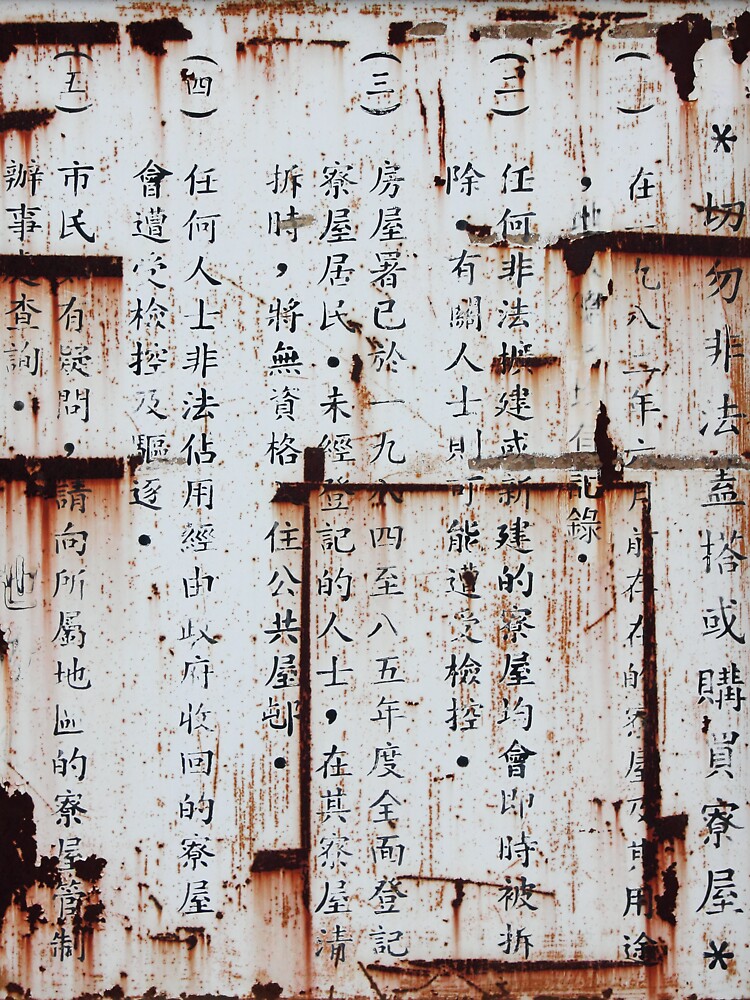 *切勿非法蓋搭或購買寮屋*
(一)在一九八二年六月前存在的寮屋及其用途
，記錄．
(二)任何非法擴建或新建的寮屋均會即時被拆
除．有關人士則可能遭受檢控．
(三)房屋署已於一九八四至八五年度全面登記
寮屋居民．未經登記的人士，在其寮屋清
拆時，將無資格住公共屋邨．
(四)任何人士非法佔用經由政府收回的寮屋
會遭受檢控及驅逐．
(五)市民有疑問，請向所屬地區的寮屋管制
辦事處查詢．